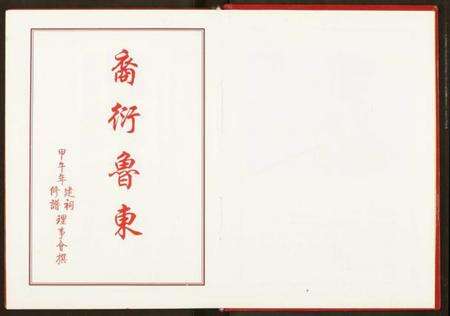 裔衍魯東
甲午年建祠修譜理事會撰